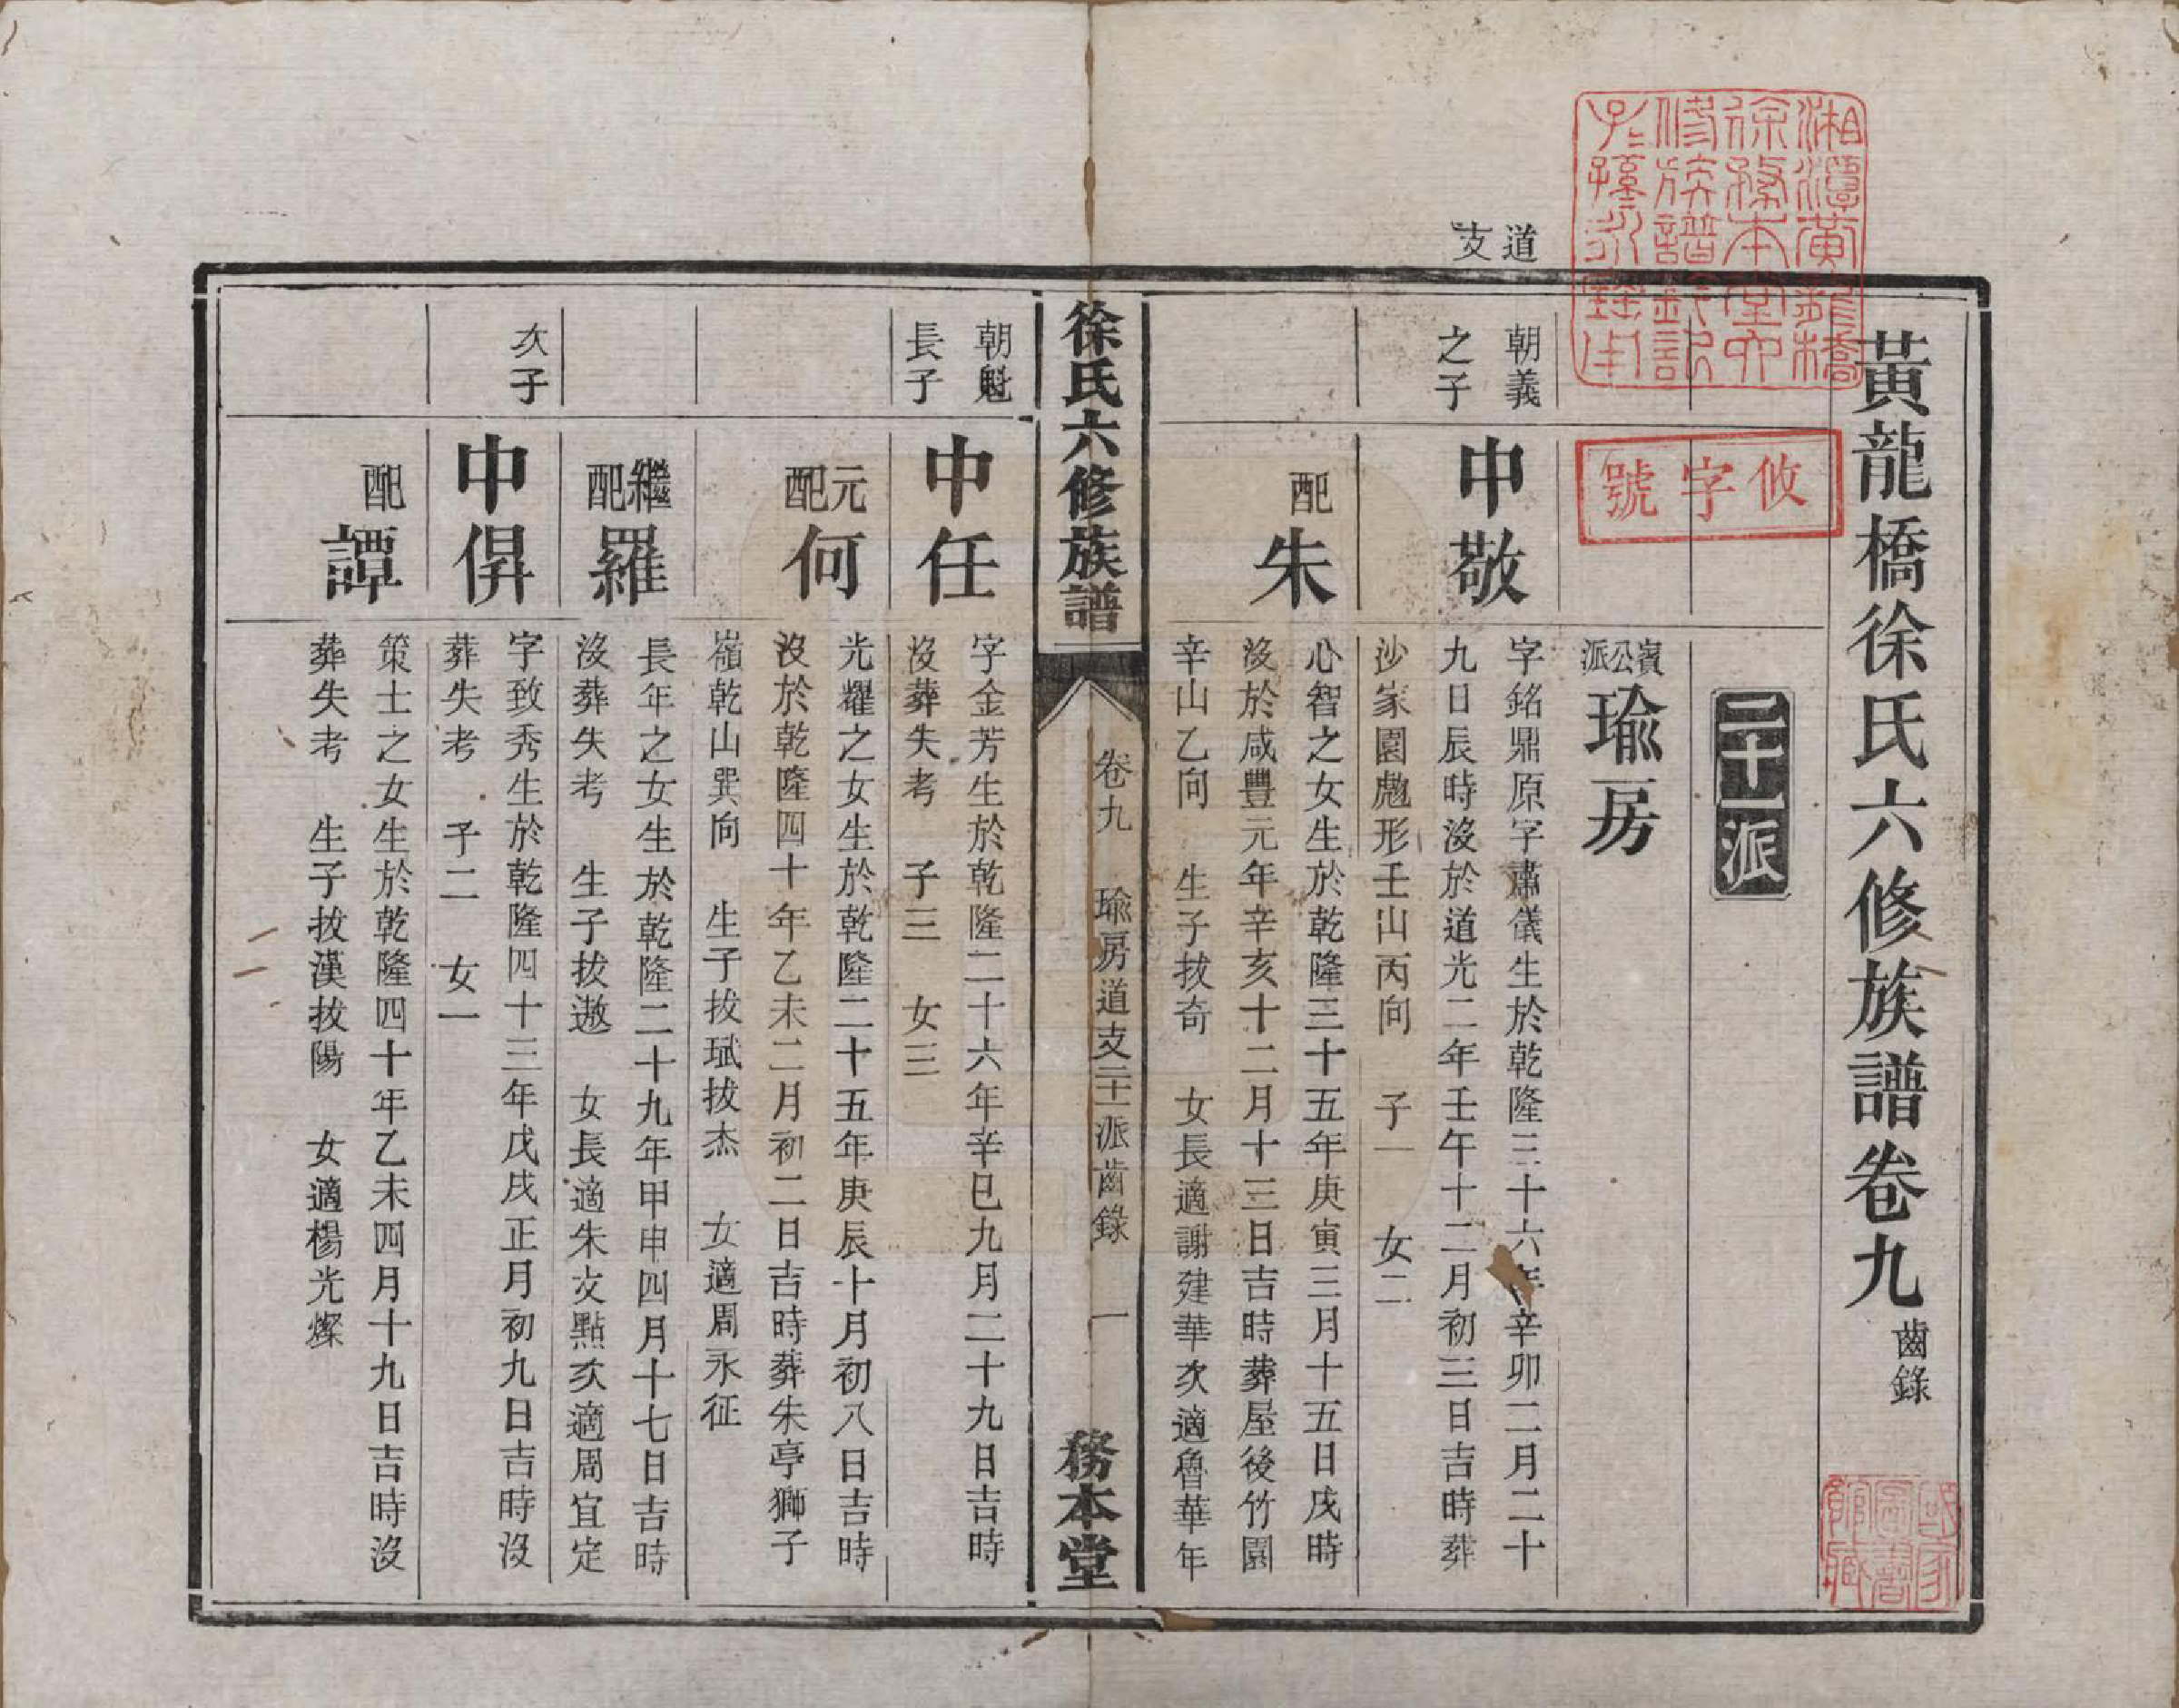 黃龍橋徐氏六修族譜卷九 齒錄
湘潭黃龍橋
徐務本堂六
修族譜鈐記
子孫永寶用
攸字號
國家
圖書
館藏
二十一派
賓公派 瑜房
道支
朝義之子
中敬
字銘鼎原字肅儀生於乾隆三十六年辛卯二月二十
九日辰時沒於道光二年壬午十二月初三日吉時葬
沙家園虺形壬山丙向 子一 女二
配朱
心智之女生於乾隆三十五年庚寅三月十五日戌時
沒於咸豐元年辛亥十二月十三日吉時葬屋後竹園
辛山乙向 生子拔奇 女長適謝建華次適魯華年
徐氏六修族譜 卷九 瑜房道支二十一派齒錄 一 務本堂
朝魁長子
中任
字金芳生於乾隆二十六年辛巳九月二十九日吉時
沒葬失考 子三 女三
元配何
光耀之女生於乾隆二十五年庚辰十月初八日吉時
沒於乾隆四十年乙未二月初二日吉時葬朱亭獅子
嶺乾山巽向 生子拔珷拔杰 女適周永征
繼配羅
長年之女生於乾隆二十九年甲申四月十七日吉時
沒葬失考 生子拔遨 女長適朱文點次適周宜定
次子
中俱
字致秀生於乾隆四十三年戊戌正月初九日吉時沒
葬失考 子二 女一
配譚
策士之女生於乾隆四十年乙未四月十九日吉時沒
葬失考 生子拔漢拔陽 女適楊光燦